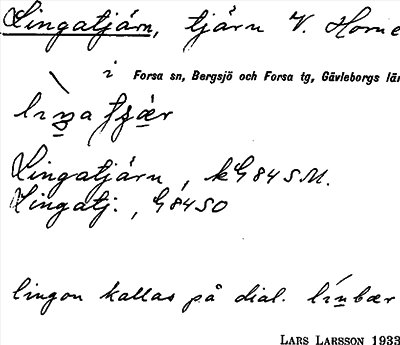 Lingatjärn, tjärn V. Horne
i Forsa sn, Bergsjö och Forsa tg, Gävleborgs län
Lingatjärn, kG 84 SM.
Lingatj:, G 84 SO
lingon kallas på dial. línbær
LARS LARSSON 1933